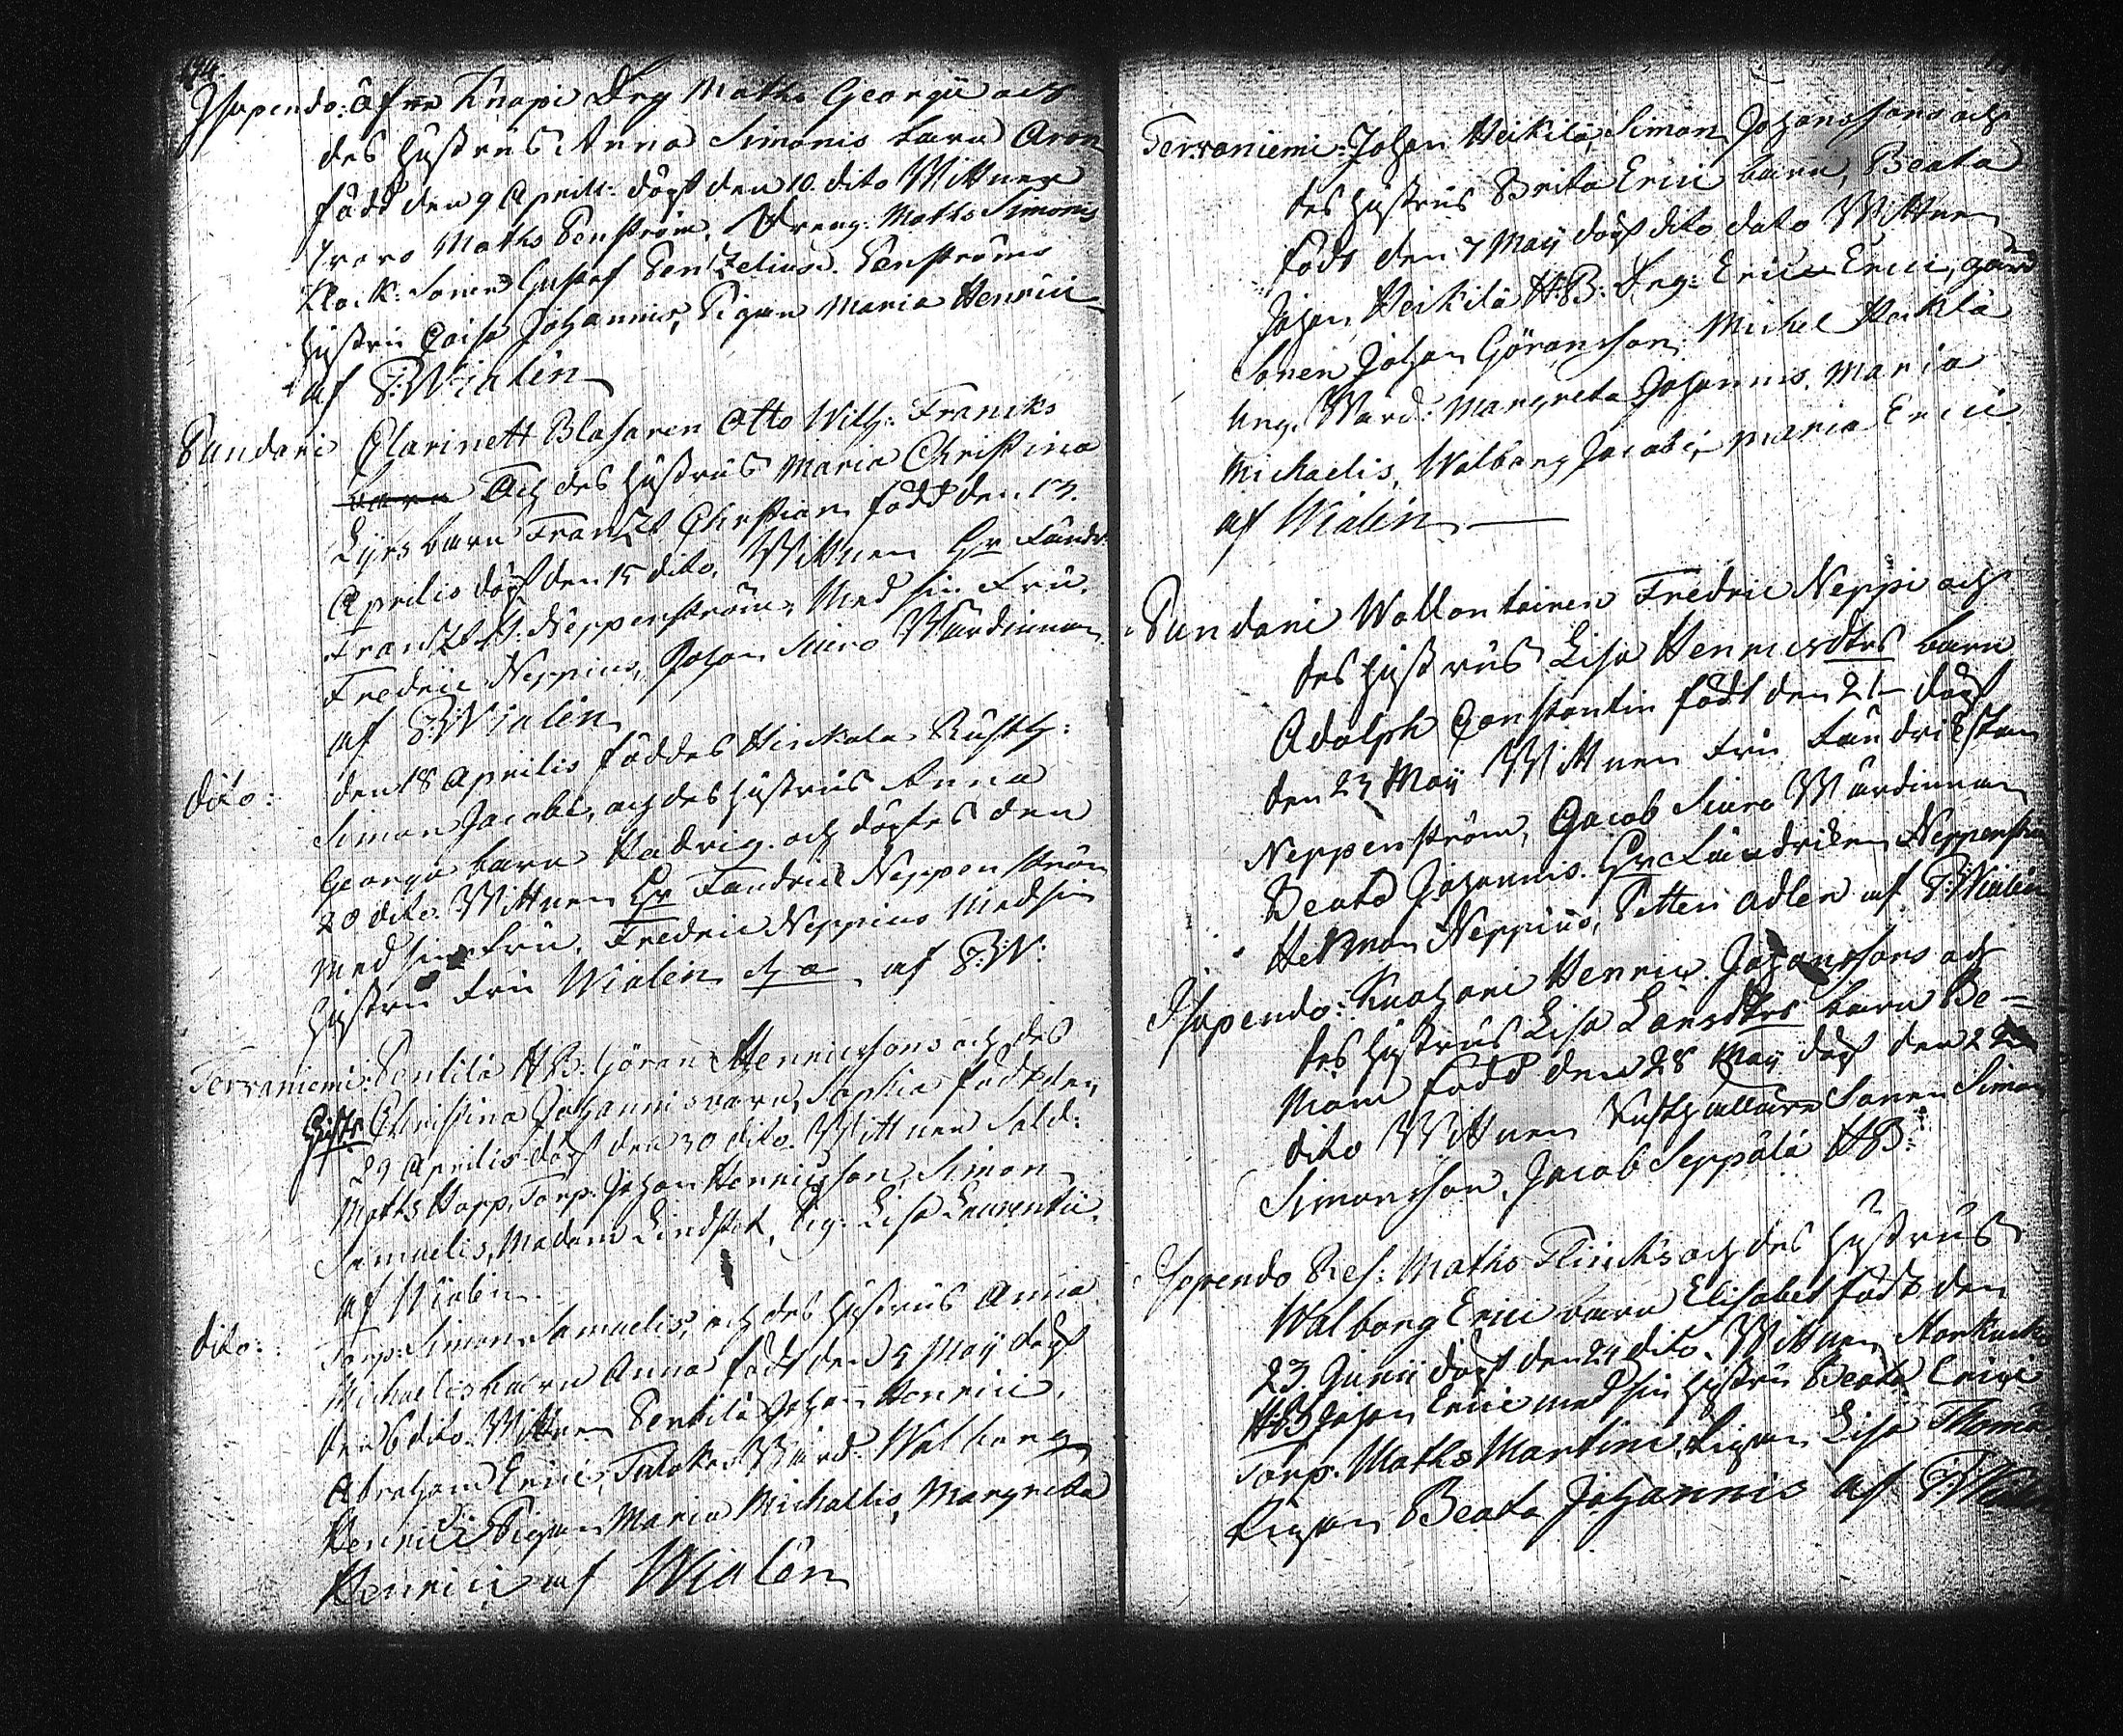 Isopendo: Öfre Knapi Drg Maths Georgii och
des hustrus Anna Simonis barn Aron
född den 9 Aprill: döpt den 10. dito Wittnen
Maths Penström, Dreng: Maths Simonis
Klock: Sonen Gustaf Pentzelius. Penströms
hustru Caisa Johannis, Pigan Maria Henrici
af P: Wialén
Pundari Clarinett Blasaren Otto Wilh: Francks
och des hustrus Maria Christina
barn Frantz Christian född den 13.
Aprilis döpt den 15 dito. Wittnen Hr Fändr:
Frantz Neppenström, Med sin Fru.
Fredric Neppius, Johan Siuro Wärdinnan
af P: Wialén
dito: den 18 Aprilis föddes Hirckala Rusth:
Simon Jacobi, och des hustrus Anna
Georgii barn Hedvig. och döptes den
20 dito. Wittnen Hr Fändric Neppenström
med sin fru. Fredric Neppius Med sin
hustru fru Wialén af P: W:
Terraniemi: Pentilä HB: Göran Henricssons och des
hustr: Christina Johannis barn, Sophia född den
29 Aprilis döpt den 30 dito. Wittnen Sold:
Maths Harpp, Torp: Johan Henricsson, Simon
Samuelis, Madam Lindstet, Pig: Lisa Laurentii.
af Wialén
dito: Torp: Simon Samuelis, och des hustrus Anna
Michaelis barn Anna född den 5 Maij döpt
den 6 dito. Wittnen Pentilä Johan Henrici.
Abraham Erici, Wärd: Walborg
Henrici Pigan Maria Michaelis, Margreta
Henrici af Wialén
Terraniemi: Johan Heikilä, Simon Johanssons och
des hustrus Brita Erici barn, Beata
född den 7 Maij döpt dito dato Wittnen
Johan Heikilä HB: Drg: Eric Erici, gård
Sonen Johan Göransson. Michel Heikilä
ung. Ward: Margreta Johannis. Maria
Michaelis, Walborg Jacobi, Maria Erici
af Wialén
Pundari Wollontairen Fredric Neppi och
des hustrus Lisa Henricsdtrs barn
Adolph Constantin född den 21 döpt
den 23 Maij Wittnen Fru Fändrickskan
Neppenström, Jacob Siuro Wärdinnan
Beata Johannis. Hr Fändricken Neppenström
Herman Neppius, Petter Adler af P: Wialén
Isopendo: Knapari Henric Johanssons och
des hustrus Lisa Larsdtrs barn Be-
född den 28 Maij döpt den
dito Wittnen Rusthållare Sonen Simon
Simonsson, Jacob Seppälä HB:
Isopendo Res: Maths Flincks och des hustrus
Walborg Erici barn Elisabet född den
23. Junii döpt den 24 dito. Wittnen
HB Johan Erici med sin hustru Beata Erici
Torp. Maths Martini, Pigan Lisa Thomæ
Pigan Beata Johannis af P: Wialén